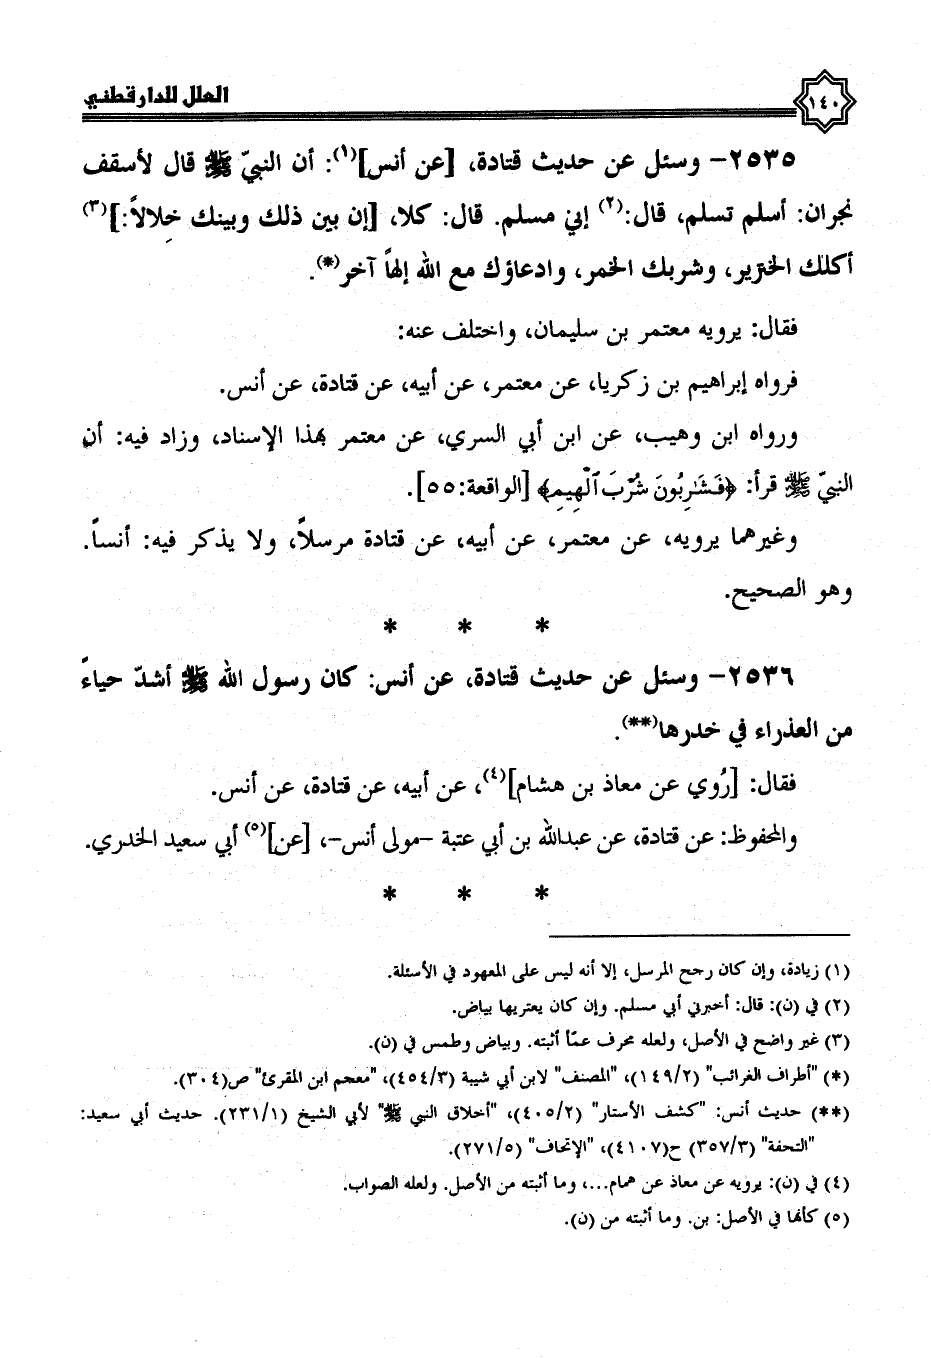 العلل للدارقطني
١٤٠
٢٥٣٥- وسئل عن حديث قتادة، [عن أنس](١): أن النبيّ ﷺ قال لأسقف
نجران: أسلم تسلم، قال:(٢) إني مسلم. قال: كلا، [إن بين ذلك وبينك خِلالاً:](٣)
أكلك الخنزير، وشربك الخمر، وادعاؤك مع الله إلهاً آخر(*).
فقال: يرويه معتمر بن سليمان، واختلف عنه:
فرواه إبراهيم بن زكريا، عن معتمر، عن أبيه، عن قتادة، عن أنس.
ورواه ابن وهيب، عن ابن أبي السري، عن معتمر بهذا الإسناد، وزاد فيه: أن
النبيّ ﷺ قرأ: ﴿فَشَٰرِبُونَ شُرْبَ ٱلْهِيمِ﴾ [الواقعة:٥٥].
وغيرهما يرويه، عن معتمر، عن أبيه، عن قتادة مرسلاً، ولا يذكر فيه: أنساً.
وهو الصحيح.
* * *
٢٥٣٦- وسئل عن حديث قتادة، عن أنس: كان رسول الله ﷺ أشدّ حياءً
من العذراء في خدرها(**).
فقال: [رُوي عن معاذ بن هشام](٤)، عن أبيه، عن قتادة، عن أنس.
والمحفوظ: عن قتادة، عن عبدالله بن أبي عتبة -مولى أنس-، [عن](٥) أبي سعيد الخدري.
* * *
(١) زيادة، وإن كان رجح المرسل، إلا أنه ليس على المعهود في الأسئلة.
(٢) في (ن): قال: أخبرني أبي مسلم. وإن كان يعتريها بياض.
(٣) غير واضح في الأصل، ولعله محرف عمّا أثبته. وبياض وطمس في (ن).
(*) "أطراف الغرائب" (١٤٩/٢)، "المصنف" لابن أبي شيبة (٤٥٤/٣)، "معجم ابن المقرئ" ص(٣٠٤).
(**) حديث أنس: "كشف الأستار" (٤٠٥/٢)، "أخلاق النبي ﷺ" لأبي الشيخ (٢٣١/١). حديث أبي سعيد:
"التحفة" (٣٥٧/٣) ح(٤١٠٧)، "الإتحاف" (٢٧١/٥).
(٤) في (ن): يرويه عن معاذ عن همام...، وما أثبته من الأصل. ولعله الصواب.
(٥) كأنها في الأصل: بن. وما أثبته من (ن).